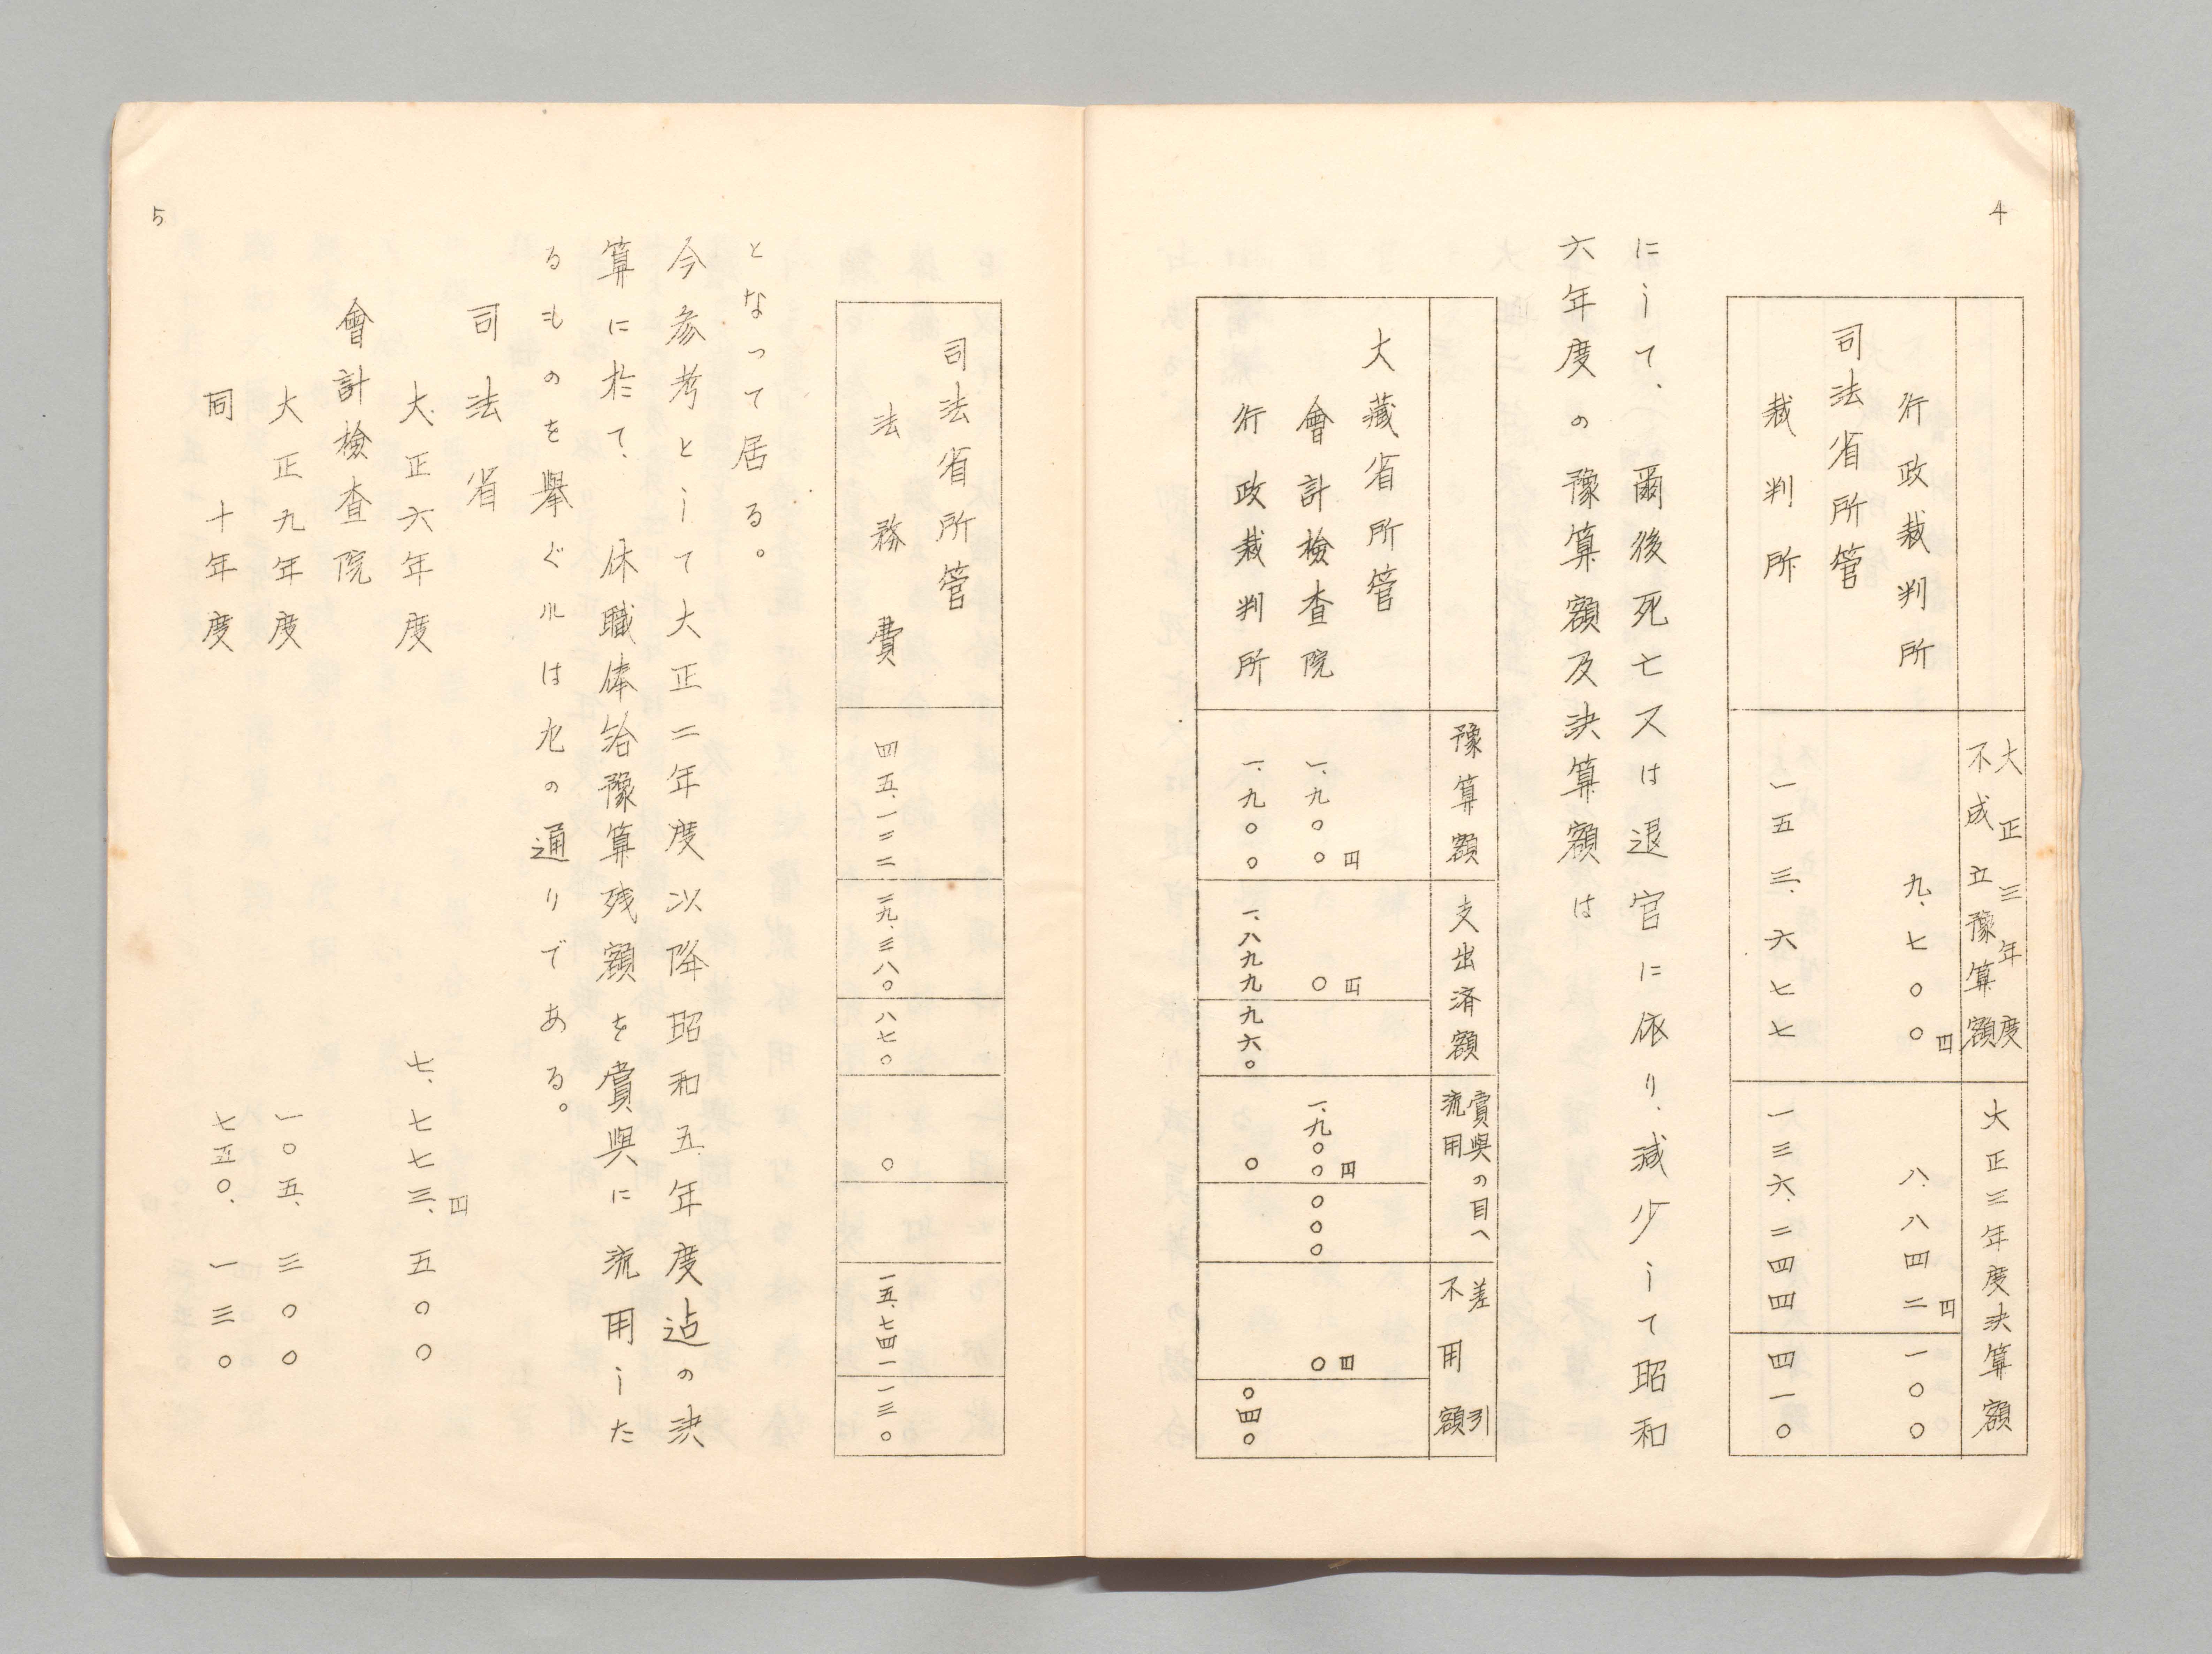 4
大正三年度
不成立豫算額
大正三年度決算額
行政裁判所
九、七〇〇円
八、八四二円
一〇〇
司法省所管
裁判所
一五三、六七七
一三六、二四四
四一〇
にして、爾後死亡又は退官に依り、減少して昭和
六年度の豫算額及決算額は
豫算額
支出済額
賞與の目へ
流用
差引
不用額
大藏省所管
會計檢査院
一、九〇〇円
〇円
一、九〇〇円
〇〇〇
〇円
行政裁判所
一、九〇〇
一、八九九
九六〇
〇
〇四〇
司法省所管
法務費
四五、一二二
二九、三八〇
八七〇
〇
一五、七四一
一三〇
となって居る。
今参考として大正二年度以降昭和五年度迠の決
算に於て、休職俸給豫算残額を賞與に流用した
るものを擧ぐれは左の通りである。
司法省
大正六年度
七、七七三、五〇〇円
會計檢査院
大正九年度
一〇五、三〇〇
同十年度
七五〇、一三〇
5